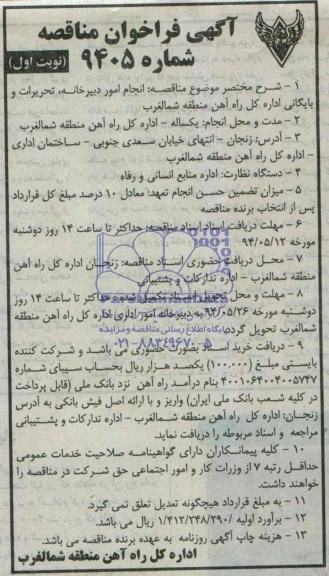 آگهی فراخوان مناقصه
شماره ۹۴۰۵
(نوبت اول)
۱ - شرح مختصر موضوع مناقصه: انجام امور دبیرخانه، تحریرات و
بایگانی اداره کل راه آهن منطقه شمالغرب
۲ - مدت و محل انجام: یکساله - اداره کل راه آهن منطقه شمالغرب
۳ - آدرس: زنجان - انتهای خیابان سعدی جنوبی - ساختمان اداری
- اداره کل راه آهن منطقه شمالغرب
۴ - دستگاه نظارت: اداره منابع انسانی و رفاه
۵ - میزان تضمین حسن انجام تعهد: معادل ۱۰ درصد مبلغ کل قرارداد
پس از انتخاب برنده مناقصه
۶ - مهلت دریافت اسناد مناقصه: حداکثر تا ساعت ۱۴ روز دوشنبه
مورخه ۹۴/۰۵/۱۲
۷ - محل دریافت حضوری اسناد مناقصه: زنجان اداره کل راه آهن
منطقه شمالغرب - اداره تدارکات و پشتیبانی
۸ - مهلت و محل تحویل اسناد تکمیل شده: حداکثر تا ساعت ۱۴ روز
دوشنبه مورخه ۹۴/۰۵/۲۶ به دبیرخانه امور اداری اداره کل راه آهن منطقه
شمالغرب تحویل گردد.
پایگاه اطلاع رسانی مناقصه و مزایده
۰۲۱-۸۸۳۴۹۶۷۰-۵
۹ - دریافت خرید اسناد بصورت حضوری می باشد و شرکت کننده
بایستی مبلغ (۱۰۰,۰۰۰) یکصد هزار ریال بحساب سیبای شماره
۴۰۰۱۰۶۴۰۰۴۰۰۵۷۴۷ بنام درآمد راه آهن نزد بانک ملی (قابل پرداخت
در کلیه شعب بانک ملی ایران) واریز و با ارائه اصل فیش بانکی به آدرس
زنجان: اداره کل راه آهن منطقه شمالغرب - اداره تدارکات و پشتیبانی
مراجعه و اسناد مربوطه را دریافت نماید.
۱۰ - کلیه پیمانکاران دارای گواهینامه صلاحیت خدمات عمومی
حداقل رتبه ۷ از وزرات کار و امور اجتماعی حق شرکت در مناقصه را
خواهند داشت.
۱۱ - به مبلغ قرارداد هیچگونه تعدیل تعلق نمی گیرد.
۱۲ - برآورد اولیه ۱/۴۱۲/۲۴۸/۲۹۰/ ریال می باشد.
۱۳ - هزینه چاپ آگهی روزنامه به عهده برنده مناقصه می باشد.
اداره کل راه آهن منطقه شمالغرب